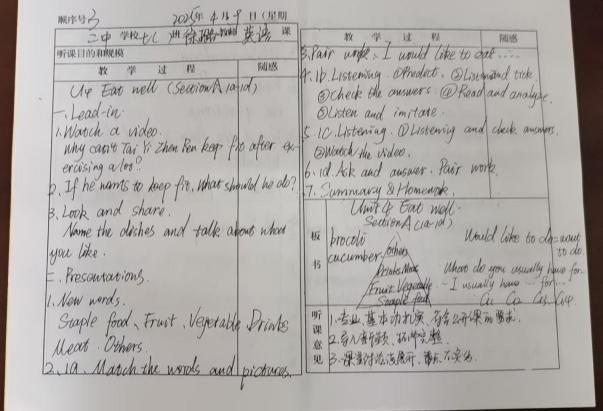 顺序号 3 2025年4月9日(星期
二中 学校 七( 班 徐 教师 英语 课
听课目的和规模
教 学 过 程 随感
U4 Eat well (Section A 1a-1d)
一、Lead-in:
1. Watch a video.
Why can't Tai Yi Zhen Ren keep fit after ex-
ercising a lot?
2. If he wants to keep fit, what should he do?
3. Look and share.
Name the dishes and talk about what
you like.
二、Presentations.
1. New words.
Staple food、Fruit、Vegetable、Drinks
Meat、Others.
2. 1a. Match the words and pictures.
教 学 过 程 随感
3. Pair work、I would like to eat ......
4. 1b. Listening ①Predict. ②Listen and tick.
③Check the answers. ④Read and analyze.
⑤Listen and imitate.
5. 1c. Listening. ①Listening and check answers.
②Watch the video.
6. 1d. Ask and answer. Pair work.
7. Summary & Homework.
板书
Unit 4 Eat well
Section A (1a-1d)
brocoli
cucumber
others
Drinks Meat
Fruit Vegetable
Staple food
Would like to do = want
to do.
What do you usually have for...
- I usually have ... for ...
G1 G2 G3 G4
听课意见
1. 专业、基本功扎实、符合公开课的要求.
2. 完整.
3. 课堂讨论